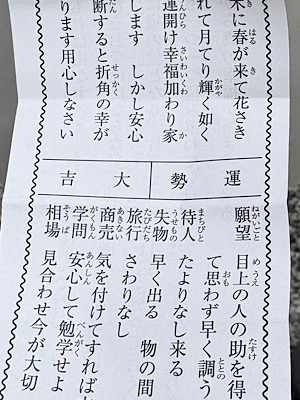 木に春が来て花さき
れて月てり輝く如く
運開け幸福加わり家
します しかし安心
断すると折角の幸が
ります用心しなさい
運勢 大吉
願望 目上の人の助を得
て思わず早く調う
待人 たよりなし来る
失物 早く出る 物の間
旅行 さわりなし
商売 気を付けてすれば
学問 安心して勉学せよ
相場 見合わせ今が大切